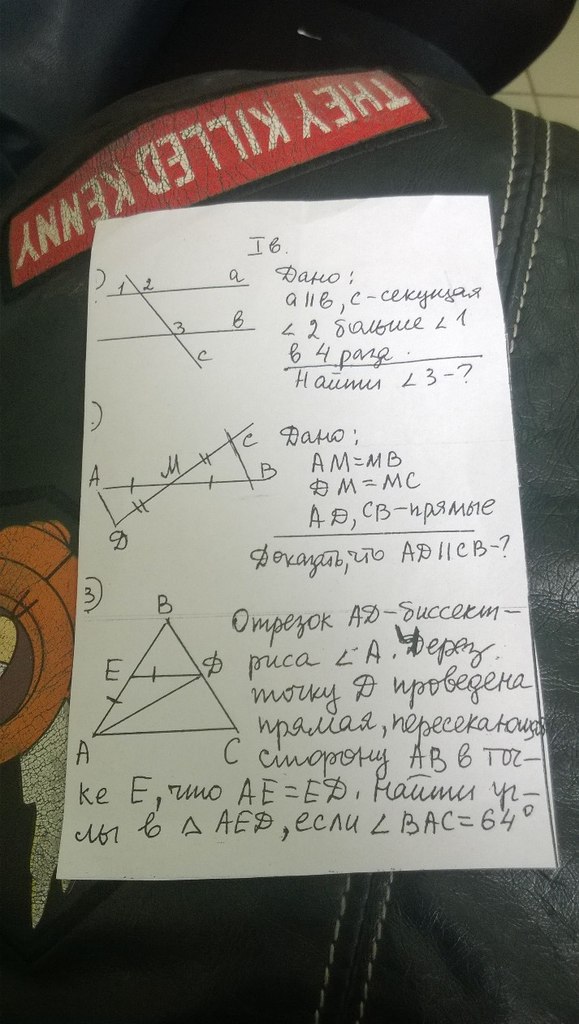 THEY KILLED KENNY
I в.
)
1 2 a
3 в
c
Дано:
a||в, c-секущая
∠2 больше ∠1
в 4 раза.
Найти ∠3-?
)
A M C B D
Дано:
AM=MB
DM=MC
AD, CB-прямые
Доказать, что AD||CB-?
3)
B
E D
A C
Отрезок AD-биссект-
риса ∠A. Через
точку D проведена
прямая, пересекающая
сторону AB в точ-
ке E, что AE=ED. Найти уг-
лы в △ AED, если ∠BAC=64°